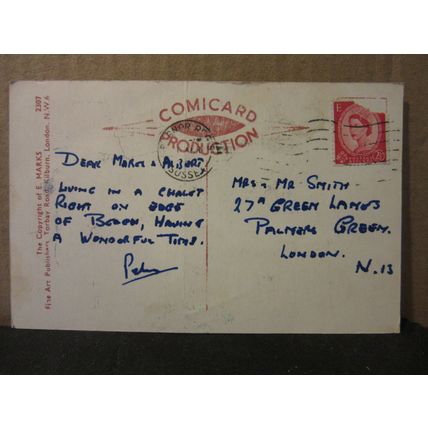 COMICARD
PRODUCTION
2307
The Copyright of E. MARKS
Fine Art Publishers Torbay Road, Kilburn, London. N.W.6
DEAR MARGE & ALBERT
LIVING IN A CHALET
RIGHT ON EDGE
OF BEACH, HAVING
A WONDERFUL TIME.
MRS & MR SMITH
27A GREEN LANES
PALMERS GREEN.
LONDON.
N.13
SUSSEX